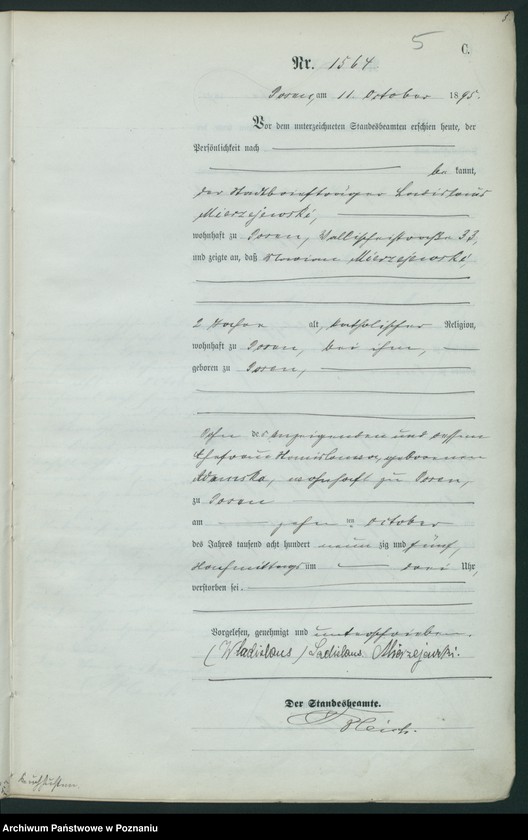 5
C.
Nr. 1564
Posen, am 11 October 1895.
Vor dem unterzeichneten Standesbeamten erschien heute, der
Persönlichkeit nach
be kannt,
der Stadtbriefträger Ladislaus
Mierzejewski,
wohnhaft zu Posen, Wallischeistraße 33,
und zeigte an, daß Florian Mierzejewski,
2 Wochen alt, katholischer Religion,
wohnhaft zu Posen, bei ihm,
geboren zu Posen,
Sohn des Anzeigenden und dessen
Ehefrau Stanislawa, geborenen
Adamska, wohnhaft zu Posen,
zu Posen
am zehn ten October
des Jahres tausend acht hundert neun zig und fünf,
Nachmittags um drei Uhr,
verstorben sei.
Vorgelesen, genehmigt und unterschrieben.
(Wladislaus) Ladislaus Mierzejewski.
Der Standesbeamte.
Archiwum Państwowe w Poznaniu